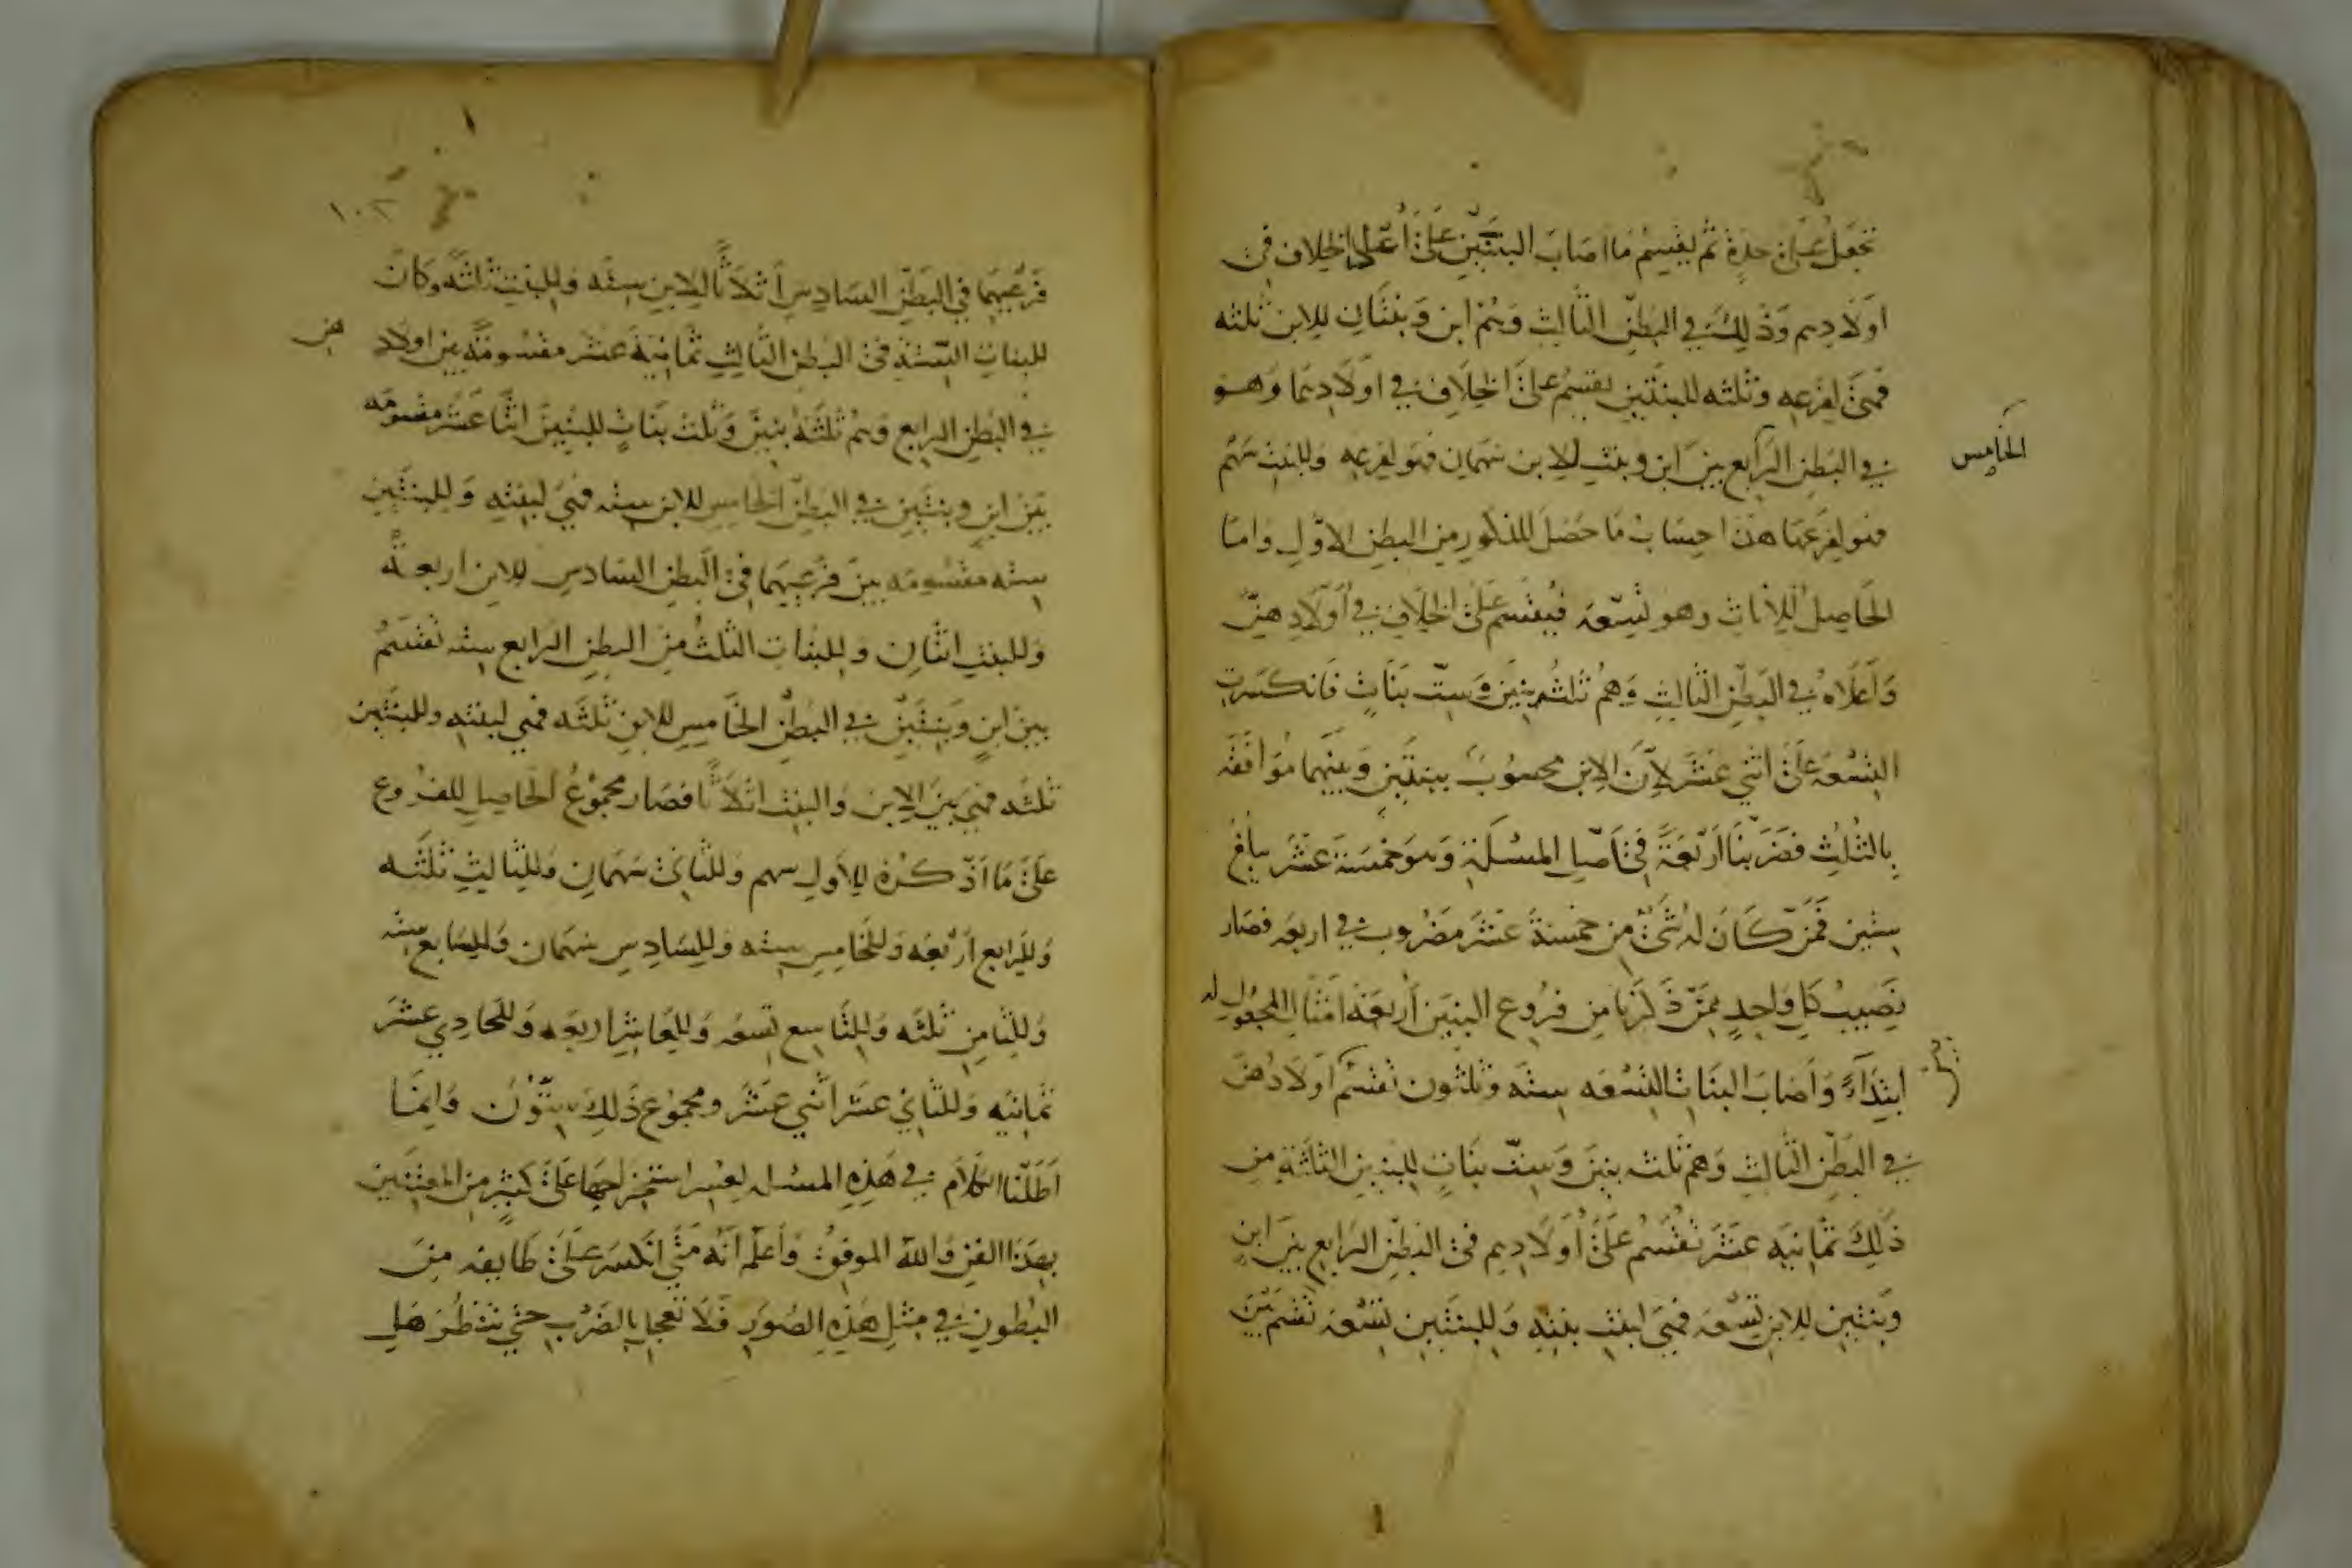 تجعل على حدة ثم يقسم ما اصاب البنتين على أعلى الخلاف في
اولادهم وذلك في البطن الثالث وهم ابن وبنتان للابن ثلثه
فهي لفرعه وثلثه للبنتين يقسم على الخلاف في اولادهما وهو
في البطن الرابع بين ابن وبنت للابن سهمان فهو لفرعه وللبنت سهم
الخامس
فهو لفرعها هذا حساب ما حصل للذكور من البطن الاول واما
الحاصل للاناث وهو تسعه فيقسم على الخلاف في أولادهن
وأعلاه في البطن الثالث وهم ثلثه بنين وست بنات فانكسرت
التسعه على اثني عشر لأن الابن محسوب ببنتين وبينهما موافقه
بالثلث فضربنا اربعة في اصل المسئلة وهو خمسة عشر يبلغ
ستين فمن كان له شئ من خمسة عشر مضروب في اربعه فصار
نصيب كل واحد ممن ذكرنا من فروع البنين أربعة امثال المجعول له
ابتداء واصاب البنات التسعه سته وثلثون تقسم اولادهن
في البطن الثالث وهم ثلث بنين وست بنات للبنين الثلثة من
ذلك ثمانيه عشر تقسم على أولادهم في البطن الرابع بين ابن
وبنتين للابن تسعه فهي لبنت بنته وللبنتين تسعه تقسم بين
١٠٢
فرعيهما في البطن السادس اثلاثا للابن سته وللبنت ثلثه وكان
للبنات الستة في البطن الثالث ثمانية عشر مقسومة بين اولاد
هن
في البطن الرابع وهم ثلثه بنين وثلث بنات للبنين اثنا عشر مقسومه
بين ابن وبنتين في البطن الخامس للابن سته فهي لبنته وللبنتين
سته مقسومه بين فرعيهما في البطن السادس للابن اربعه
وللبنت اثنان وللبنات الثلث من البطن الرابع سته تقسم
بين ابن وبنتين في البطن الخامس للابن ثلثه فهي لبنته وللبنتين
ثلثه فهي بين الابن والبنت اثلاثا فصار مجموع الحاصل للفروع
على ما اذكره للأول سهم وللثاني سهمان وللثالث ثلثه
وللرابع أربعه وللخامس سته وللسادس سهمان وللسابع سته
وللثامن ثلثه وللتاسع تسعه وللعاشر اربعه وللحادي عشر
ثمانيه وللثاني عشر اثني عشر ومجموع ذلك ستون وانما
اطلنا الكلام في هذه المسئله لعسر استخراجها على كثير من المعتنين
بهذا الفن والله الموفق وأعلم انه متى انكسر على طايفه من
البطون في مثل هذه الصور فلا تعجل بالضرب حتي تنظر هل